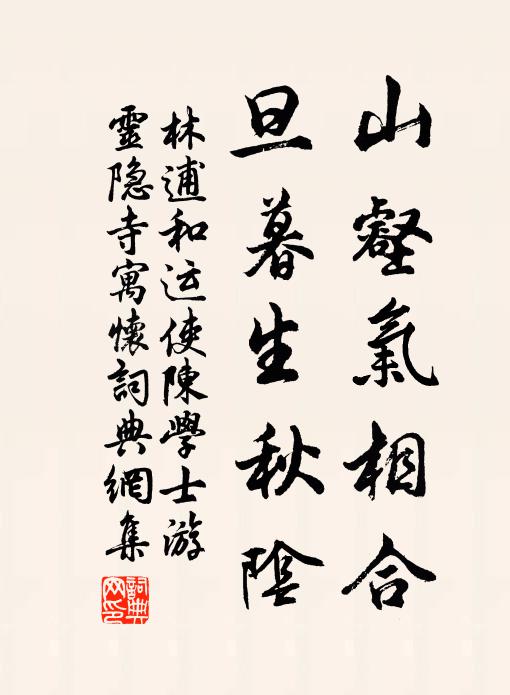 山壑氣相合
旦暮生秋陰
林逋和运使陳學士游
靈隐寺寓懷詞典網集
詞典网印